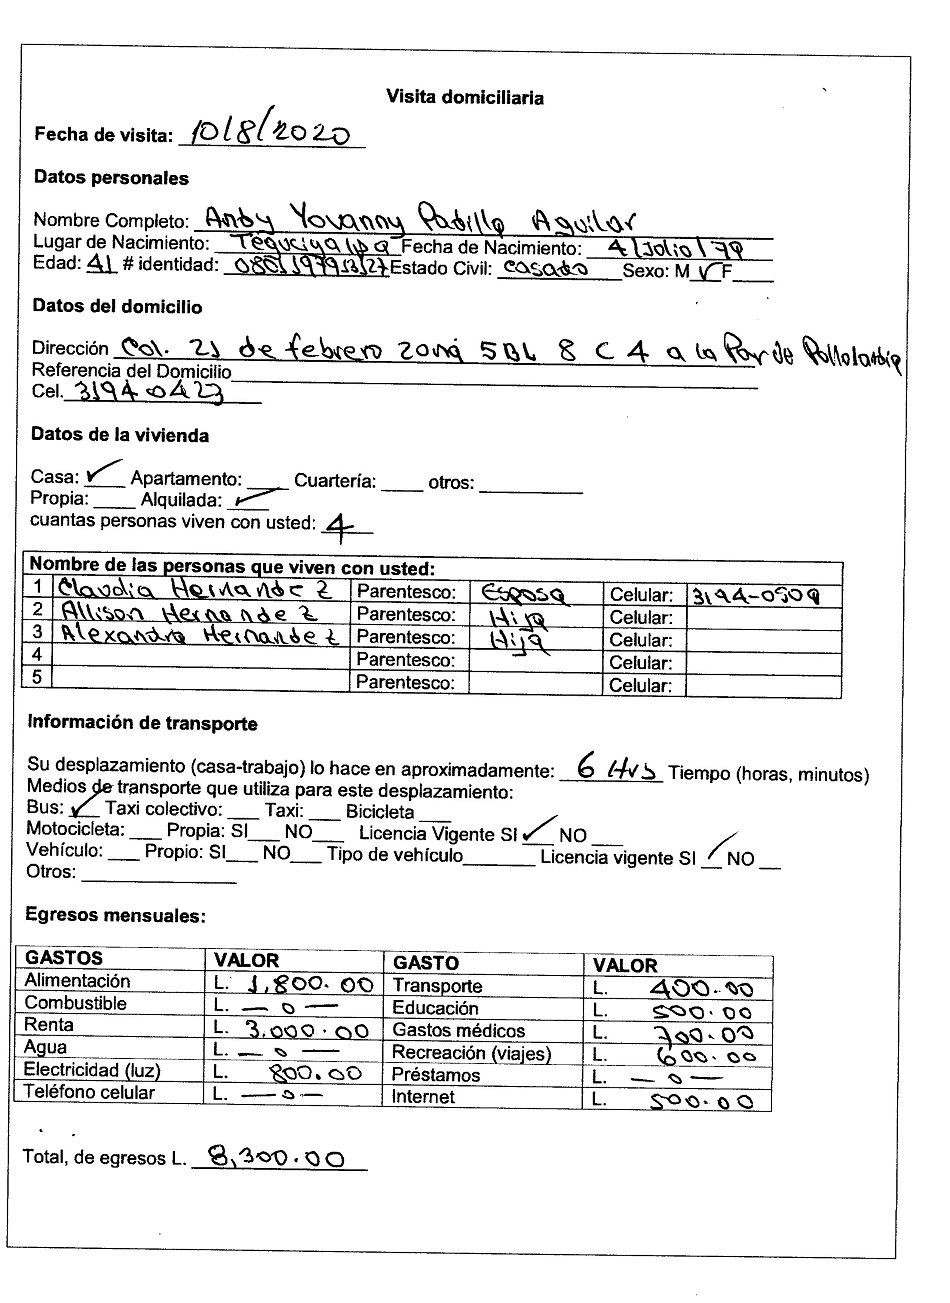 Visita domiciliaria
Fecha de visita: 10/8/2020
Datos personales
Nombre Completo: Andy Yovanny Padilla Aguilar
Lugar de Nacimiento: Tegucigalpa Fecha de Nacimiento: 4/Julio/79
Edad: 41 # identidad: Estado Civil: casado Sexo: M ✓ F
Datos del domicilio
Dirección Col. 21 de febrero zona 5 BL 8 C 4 a la Par de
Referencia del Domicilio
Cel. 3194-0423
Datos de la vivienda
Casa: ✓ Apartamento: ____ Cuartería: ____ otros: ____
Propia: ____ Alquilada: ✓
cuantas personas viven con usted: 4
Nombre de las personas que viven con usted:
1 Claudia Hernandez Parentesco: Esposa Celular: 3194-0509
2 Allison Hernandez Parentesco: Hija Celular:
3 Alexandra Hernandez Parentesco: Hija Celular:
4 Parentesco: Celular:
5 Parentesco: Celular:
Información de transporte
Su desplazamiento (casa-trabajo) lo hace en aproximadamente: 6 Hrs Tiempo (horas, minutos)
Medios de transporte que utiliza para este desplazamiento:
Bus: ✓ Taxi colectivo: ___ Taxi: ___ Bicicleta ___
Motocicleta: ___ Propia: SI___ NO___ Licencia Vigente SI ✓ NO ___
Vehículo: ___ Propio: SI___ NO___ Tipo de vehículo_______ Licencia vigente SI ✓ NO __
Otros: ____
Egresos mensuales:
GASTOS VALOR GASTO VALOR
Alimentación L. 1,800.00 Transporte L. 400.00
Combustible L. — 0 — Educación L. 500.00
Renta L. 3,000.00 Gastos médicos L. 700.00
Agua L. — 0 — Recreación (viajes) L. 600.00
Electricidad (luz) L. 800.00 Préstamos L. — 0 —
Teléfono celular L. — 0 — Internet L. 500.00
Total, de egresos L. 8,300.00